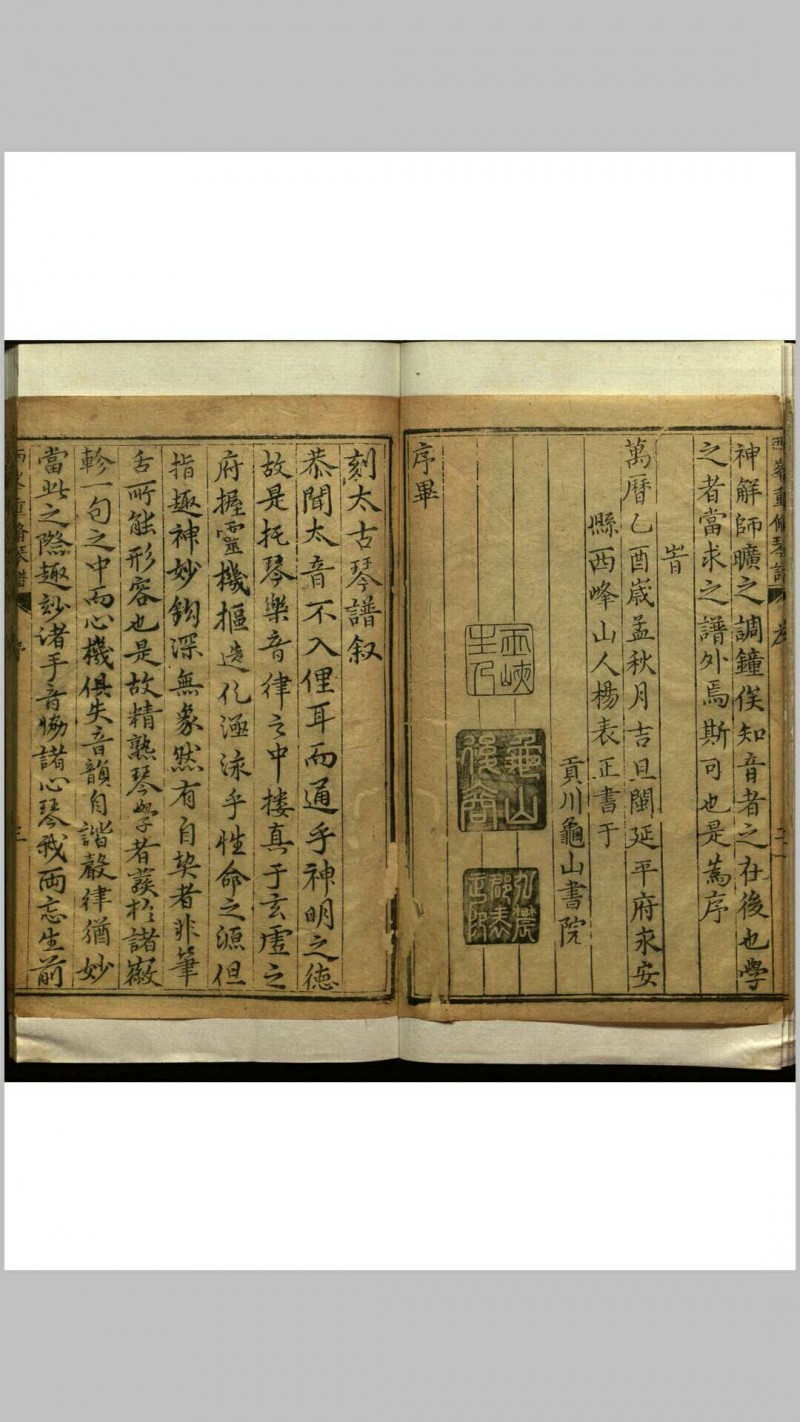 西峯重修琴譜
神解師曠之調鐘俟知音者之在後也學
之者當求之譜外焉斯可也是為序
旹
萬曆乙酉歲孟秋月吉旦閩延平府永安
縣西峰山人楊表正書于
貢川龜山書院
龜山
序畢
刻太古琴譜叙
恭聞太音不入俚耳而通乎神明之德
故是托琴樂音律之中棲真于玄虛之
府握靈機摳造化涵泳乎性命之源但
指趣神妙鈎深無象然有自契者非筆
舌所能形容也是故精熟琴學者蔟於諸徽
軫一句之中而心機俱失音韻自諧聲律猶妙
當此之際趣妙諸手音恊諸心琴我両忘生前
重脩琴譜